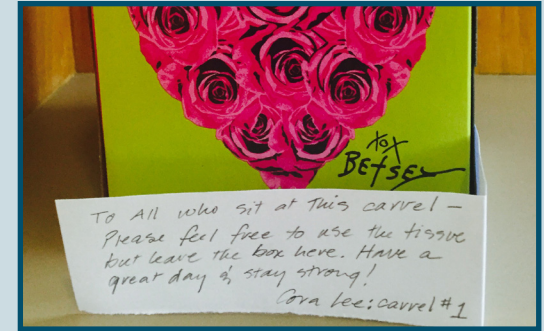 xox
BETSEY
To All who sit at This carrel –
Please feel free to use the tissue
but leave the box here. Have a
great day & stay strong!
Cora Lee: carrel #1